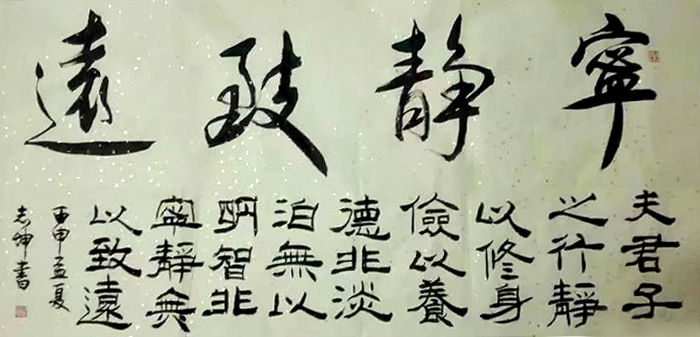 寧靜致遠
夫君子
之行靜
以修身
儉以養
德非淡
泊無以
明智非
寧靜無
以致遠
丙申孟夏
志坤書